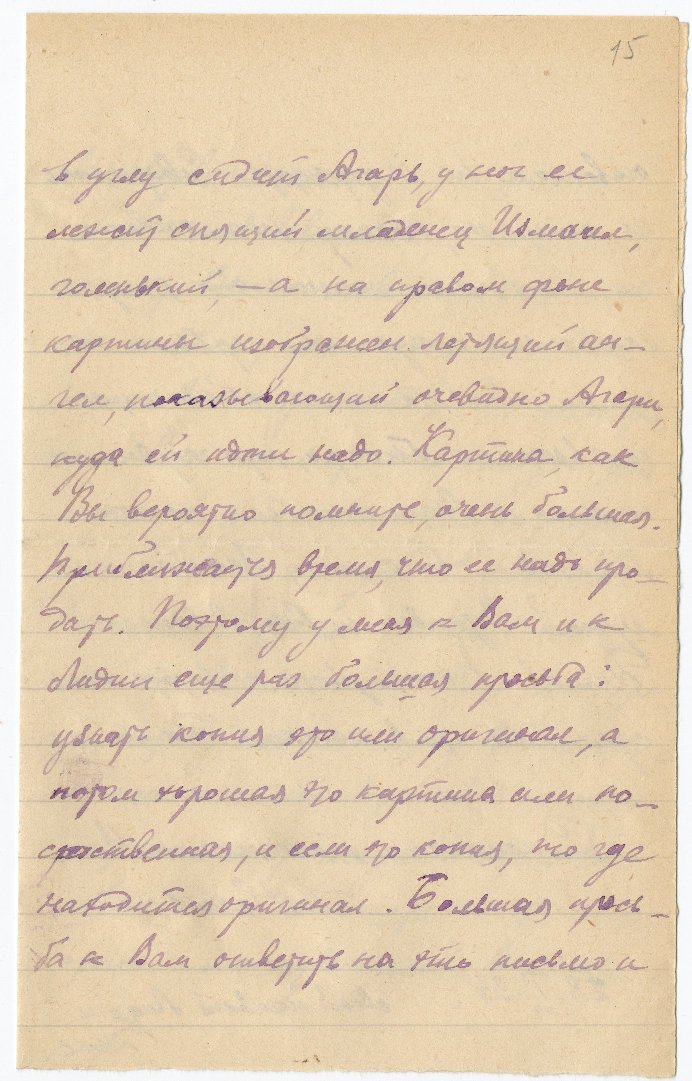 15
в углу сидит Агарь, у ног ее
лежит спящий младенец Измаил,
голенький, — а на правом фоне
картины изображен летящий ан-
гел, показывающий очевидно Агари,
куда ей идти надо. Картина, как
Вы вероятно помните, очень большая.
Приближается время, что ее надо про-
дать. Поэтому у меня к Вам и к
Лидии еще раз большая просьба:
узнать копия это или оригинал, а
потом хорошая это картина или по-
средственная, и если это копия, то где
находится оригинал. Большая прось-
ба к Вам ответить на это письмо и